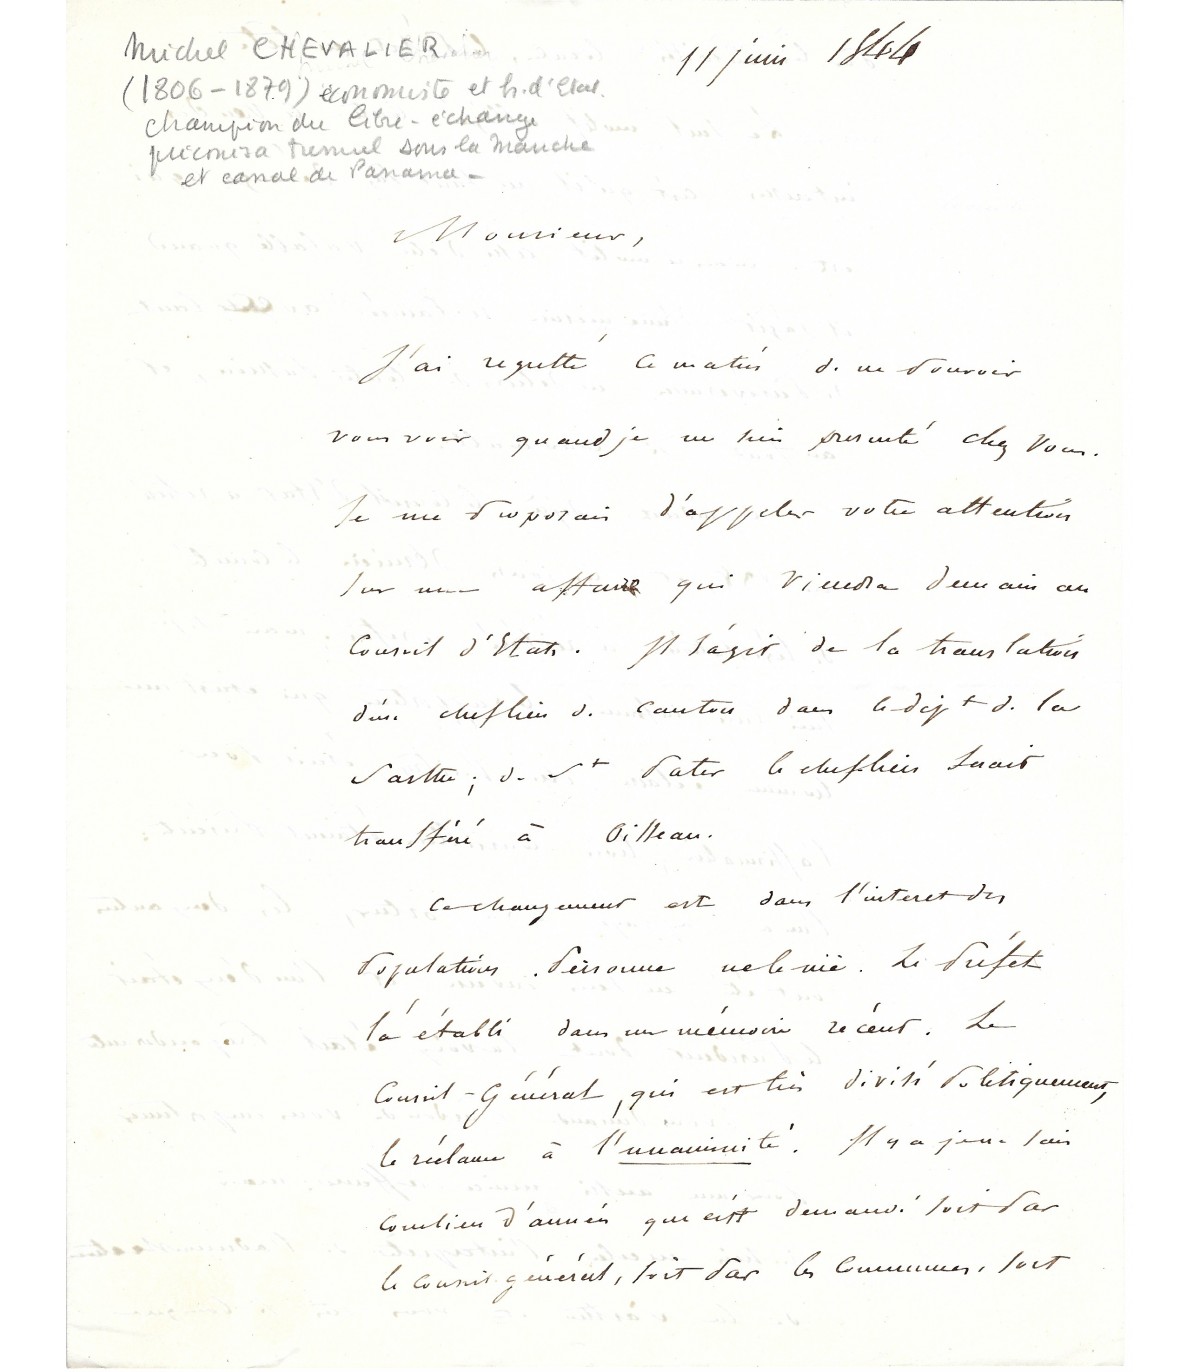 Michel CHEVALIER
11 juin 1844
(1806-1879) économiste et h. d'Etat.
champion du libre-échange
préconisa tunnel sous la Manche
et canal de Panama -
Monsieur,
J'ai regretté ce matin de ne pouvoir
vous voir quand je me suis présenté chez vous.
Je me proposais d'appeler votre attention
sur une affaire qui viendra demain au
Conseil d'Etat. Il s'agit de la translation
d'un chef lieu de canton dans le dépt de la
Sarthe ; de St Pater le chef lieu serait
transféré à Oisseau.
Ce changement est dans l'interet des
populations. personne ne le nie. Le Préfet
l'a établi dans un mémoire récent. Le
Conseil-Général, qui est très divisé politiquement,
le réclame à l'unanimité. Il y a je ne sais
combien d'années que c'est demandé soit par
le conseil général, soit par les communes, soit